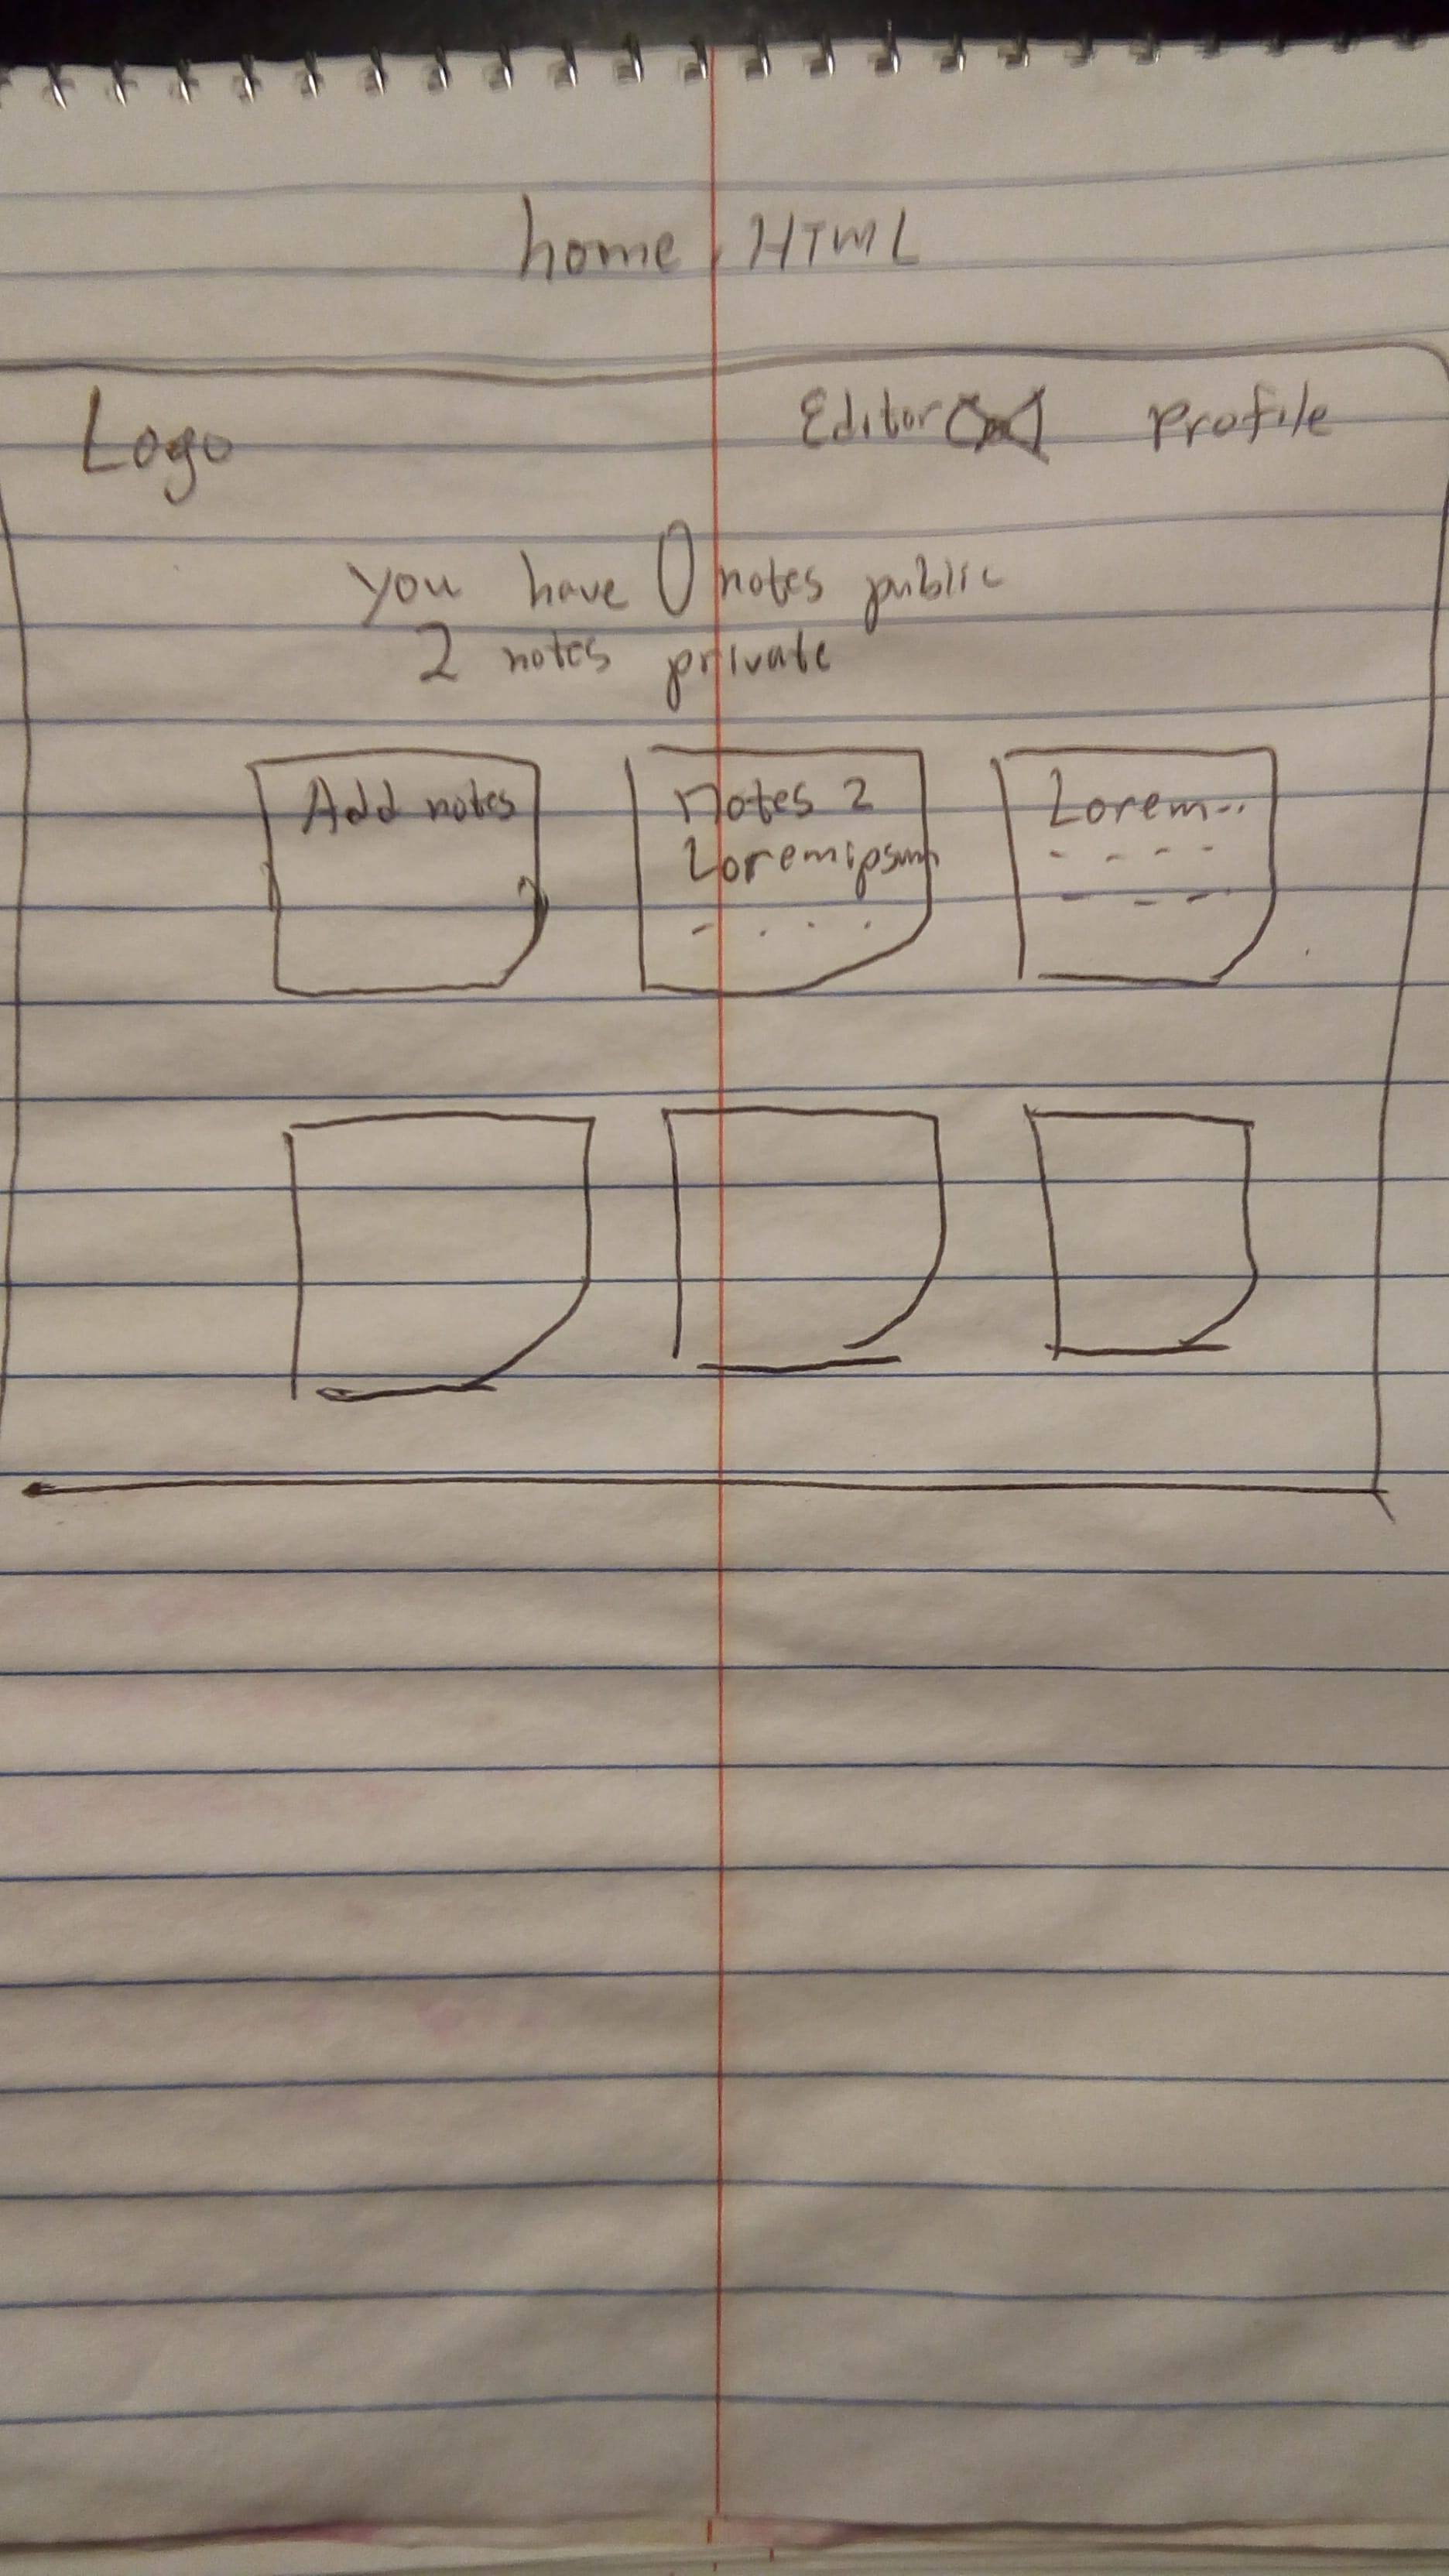 home.HTML
Logo Editor Profile
you have 0 notes public
2 notes private
Add notes
Notes 2
Lorem ipsum
Lorem...